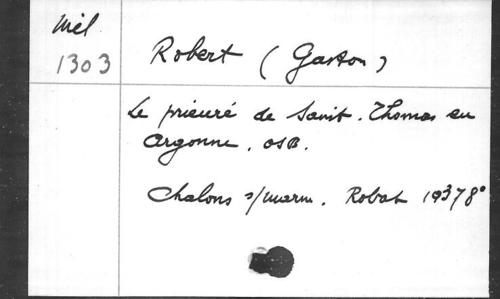 Mél
1303
Robert (Gaston)
Le prieuré de Saint. Thomas en
Argonne. OSB.
Chalons s/marn. Robat 1937 8°